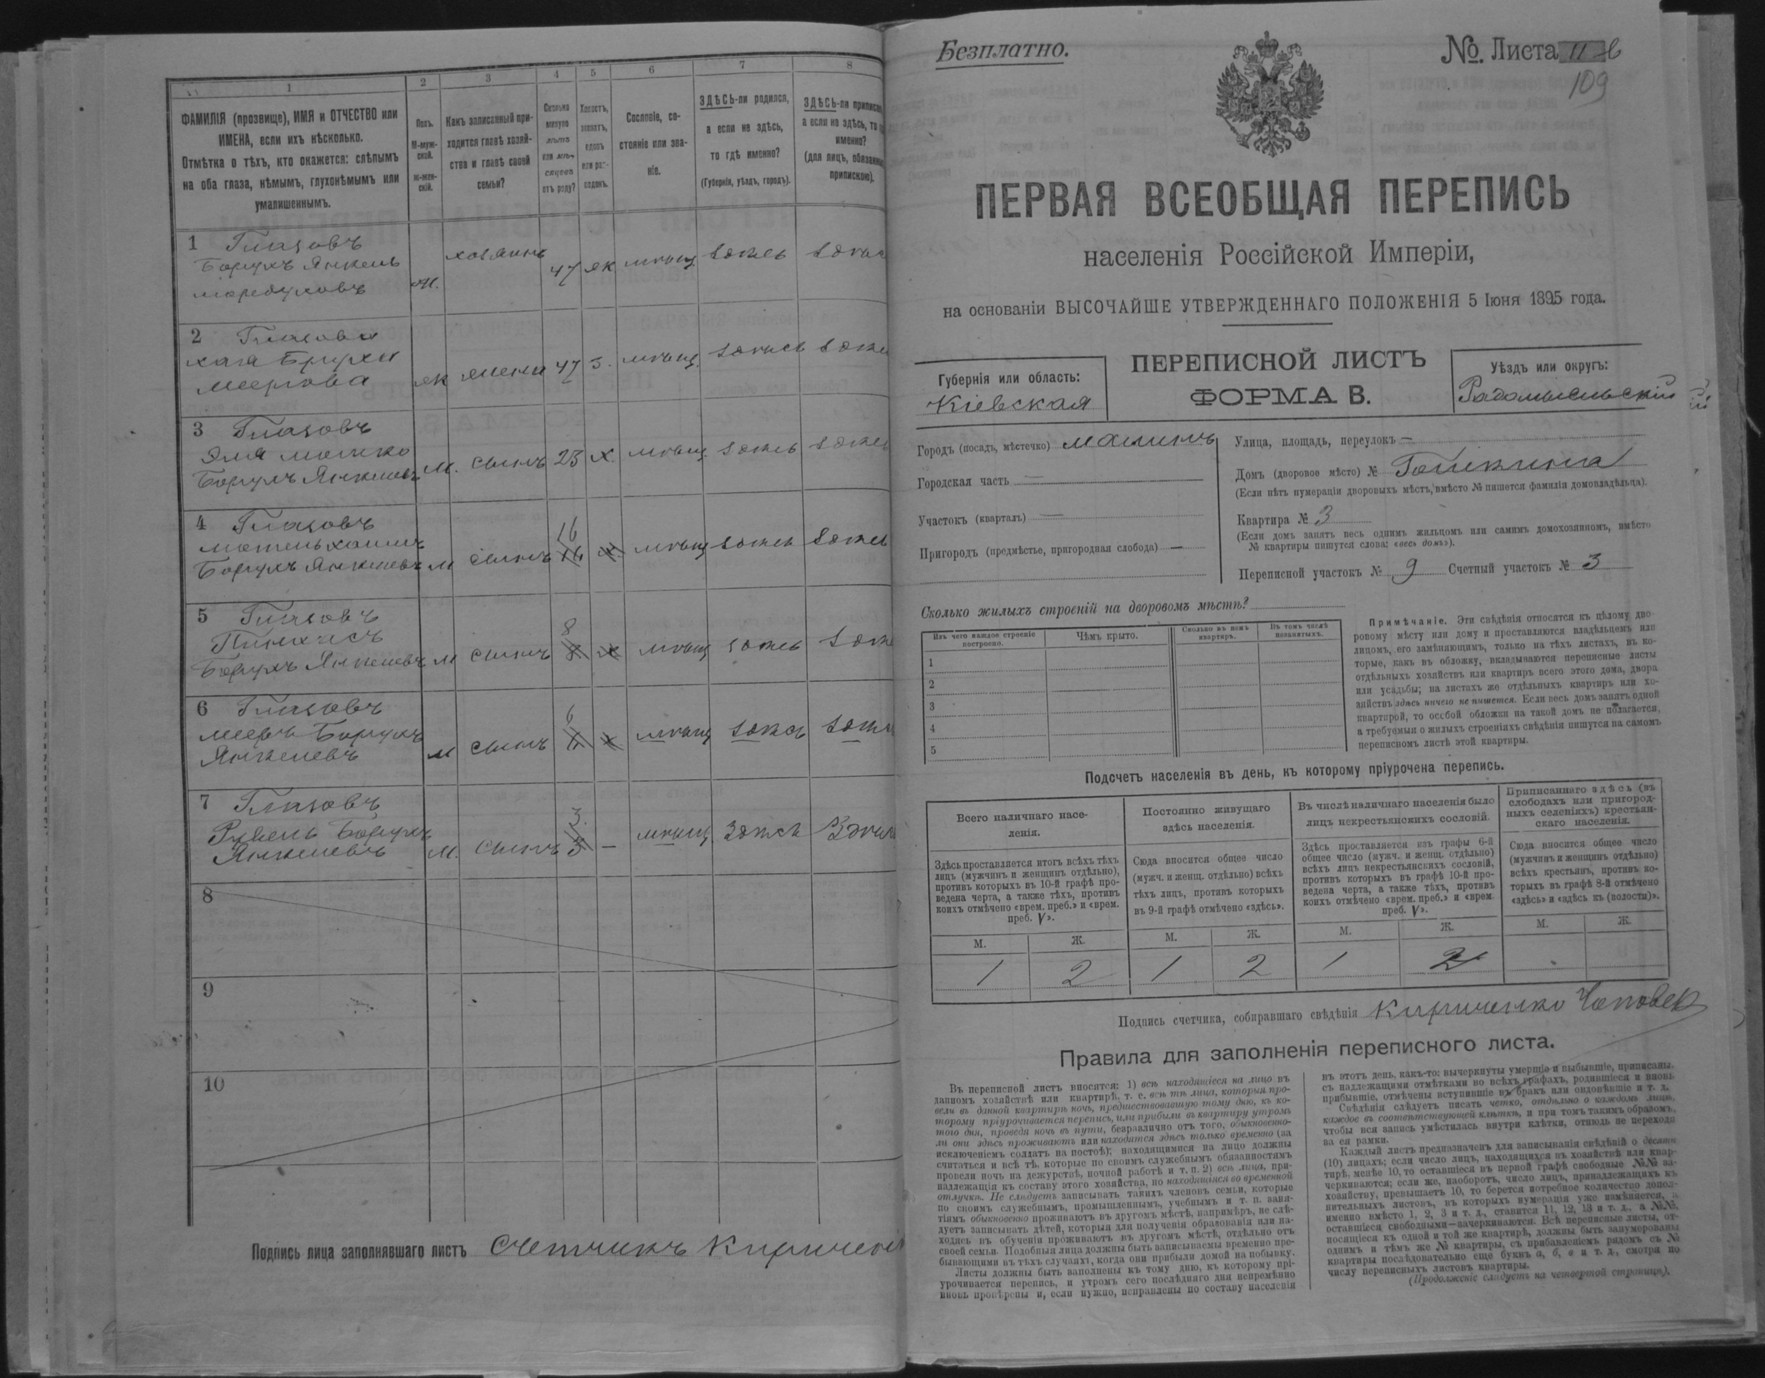 1 2 3 4 5 6 7 8
ФАМИЛІЯ (прозвище), ИМЯ и ОТЧЕСТВО или
ИМЕНА, если ихъ нѣсколько.
Отмѣтка о тѣхъ, кто окажется: слѣпымъ
на оба глаза, нѣмымъ, глухонѣмымъ или
умалишеннымъ.
Полъ.
М-муж-
ской.
Ж-жен-
скій.
Какъ записанный при-
ходится главѣ хозяй-
ства и главѣ своей
семьи?
Сколько
минуло
лѣтъ
или мѣ-
сяцевъ
отъ роду?
Холостъ,
женатъ,
вдовъ
или раз-
веденъ.
Сословіе, со-
стояніе или зва-
ніе.
ЗДѢСЬ-ли родился,
а если не здѣсь,
то гдѣ именно?
(Губернія, уѣздъ, городъ).
ЗДѢСЬ-ли приписан
а если не здѣсь, то г
именно?
(для лицъ, обязанн
припискою).
1 Глазовъ
Борухъ Янкель
Мордуховъ
М. хозяинъ 47 ж мѣщ здѣсь здѣсь
2 Глазова
Хая Брухи
Меерова
ж жена 47 з. мѣщ здѣсь здѣсь
3 Глазовъ
Эля Мошко
Борухъ Янкелевъ
М. сынъ 23 х. мѣщ здѣсь здѣсь
4 Глазовъ
Борухъ Янкелевъ
м сынъ 16 мѣщ здѣсь здѣсь
5 Глазовъ
Пинхасъ
Борухъ Янкелевъ
м сынъ 8 х мѣщ здѣсь здѣсь
6 Глазовъ
Мееръ Борухъ
Янкелевъ
м сынъ 6 х мѣщ здѣсь здѣсь
7 Глазовъ
Рувень Борухъ
Янкелевъ
М. сынъ 3. — мѣщ Здѣсь Здѣсь
8
9
10
Подпись лица заполнявшаго листъ Счетчикъ Кириченк
Безплатно.
№. Листа 11 в
109
ПЕРВАЯ ВСЕОБЩАЯ ПЕРЕПИСЬ
населенія Россійской Имперіи,
на основаніи ВЫСОЧАЙШЕ УТВЕРЖДЕННАГО ПОЛОЖЕНІЯ 5 Іюня 1895 года.
Губернія или область:
Кіевская
ПЕРЕПИСНОЙ ЛИСТЪ
ФОРМА В.
Уѣздъ или округъ:
Радомысльскій
Городъ (посадъ, мѣстечко) Малинъ
Городская часть —
Участокъ (кварталъ) —
Пригородъ (предмѣстье, пригородная слобода) —
Улица, площадь, переулокъ —
Домъ (дворовое мѣсто) № Гойкина
(Если нѣтъ нумераціи дворовыхъ мѣстъ, вмѣсто № пишется фамилія домовладѣльца).
Квартира № 3
(Если домъ занятъ весь однимъ жильцомъ или самимъ домохозяиномъ, вмѣсто
№ квартиры пишутся слова: «весь домъ»).
Переписной участокъ № 9 Счетный участокъ № 3
Сколько жилыхъ строеній на дворовомъ мѣстѣ?
Изъ чего каждое строеніе
построено.
Чѣмъ крыто.
Сколько въ немъ
квартиръ.
Въ томъ числѣ
незанятыхъ.
1
2
3
4
5
Примѣчаніе. Эти свѣдѣнія относятся къ цѣлому дво-
ровому мѣсту или дому и проставляются владѣльцемъ или
лицомъ, его замѣняющимъ, только на тѣхъ листахъ, въ ко-
торые, какъ въ обложку, вкладываются переписные листы
отдѣльныхъ хозяйствъ или квартиръ всего этого дома, двора
или усадьбы; на листахъ же отдѣльныхъ квартиръ или хо-
зяйствъ здѣсь ничего не пишется. Если весь домъ занятъ одной
квартирой, то особой обложки на такой домъ не полагается,
а требуемыя о жилыхъ строеніяхъ свѣдѣнія пишутся на самомъ
переписномъ листѣ этой квартиры.
Подсчетъ населенія въ день, къ которому пріурочена перепись.
Всего наличнаго насе-
ленія.
Постоянно живущаго
здѣсь населенія.
Въ числѣ наличнаго населенія было
лицъ некрестьянскихъ сословій.
Приписаннаго здѣсь (въ
слободахъ или пригород-
ныхъ селеніяхъ) крестьян-
скаго населенія.
Здѣсь проставляется итогъ всѣхъ тѣхъ
лицъ (мужчинъ и женщинъ отдѣльно),
противъ которыхъ въ 10-й графѣ про-
ведена черта, а также тѣхъ, противъ
коихъ отмѣчено «врем. преб.» и «врем.
преб. V».
Сюда вносится общее число
(мужч. и женщ. отдѣльно) всѣхъ
тѣхъ лицъ, противъ которыхъ
въ 9-й графѣ отмѣчено «здѣсь».
Здѣсь проставляется изъ графы 6-й
общее число (мужч. и женщ. отдѣльно)
всѣхъ лицъ некрестьянскихъ сословій,
противъ которыхъ въ графѣ 10-й про-
ведена черта, а также тѣхъ, противъ
коихъ отмѣчено «врем. преб.» и «врем.
преб. V».
Сюда вносится общее число
(мужчинъ и женщинъ отдѣльно)
всѣхъ крестьянъ, противъ ко-
торыхъ въ графѣ 8-й отмѣчено
«здѣсь» и «здѣсь къ (волости)».
М. Ж. М. Ж. М. Ж. М. Ж.
1 2 1 2 1 2
Подпись счетчика, собиравшаго свѣдѣнія Кириченко
Правила для заполненія переписного листа.
Въ переписной листъ вносятся: 1) всѣ находящіеся на лицо въ
данномъ хозяйствѣ или квартирѣ, т. е. всѣ тѣ лица, которыя про-
вели въ данной квартирѣ ночь, предшествовавшую тому дню, къ ко-
торому пріурочивается перепись, или прибыли въ квартиру утромъ
того дня, проведя ночь въ пути, безразлично отъ того, обыкновенно-
ли они здѣсь проживаютъ или находятся здѣсь только временно (за
исключеніемъ солдатъ на постоѣ); находящимися на лицо должны
считаться и всѣ тѣ, которые по своимъ служебнымъ обязанностямъ
провели ночь на дежурствѣ, ночной работѣ и т. п. 2) всѣ лица, при-
надлежащія къ составу этого хозяйства, но находящіяся во временной
отлучкѣ. Не слѣдуетъ записывать такихъ членовъ семьи, которые
по своимъ служебнымъ, промышленнымъ, учебнымъ и т. п. заня-
тіямъ обыкновенно проживаютъ въ другомъ мѣстѣ, напримѣръ, не слѣ-
дуетъ записывать дѣтей, которыя для полученія образованія или на-
ходясь въ обученіи проживаютъ въ другомъ мѣстѣ, отдѣльно отъ
своей семьи. Подобныя лица должны быть записываемы временно пре-
бывающими въ тѣхъ случаяхъ, когда они прибыли домой на побывку.
Листы должны быть заполнены къ тому дню, къ которому прі-
урочивается перепись, и утромъ сего послѣдняго дня непремѣнно
вновь провѣрены и, если нужно, исправлены по составу населенія
въ этотъ день, какъ-то: вычеркнуты умершіе и выбывшіе, приписаны
съ надлежащими отмѣтками во всѣхъ графахъ, родившіеся и вновь
прибывшіе, отмѣчены вступившіе въ бракъ или овдовѣвшіе и т. д.
Свѣдѣнія слѣдуетъ писать четко, отдѣльно о каждомъ лицѣ,
каждое въ соотвѣтствующей клѣткѣ, и при томъ такимъ образомъ,
чтобы вся запись умѣстилась внутри клѣтки, отнюдь не переходя
за ея рамки.
Каждый листъ предназначенъ для записыванія свѣдѣній о десяти
(10) лицахъ; если число лицъ, находящихся въ хозяйствѣ или квар-
тирѣ, менѣе 10, то оставшіеся въ первой графѣ свободные №№ за-
черкиваются; если же, наоборотъ, число лицъ, принадлежащихъ къ
хозяйству, превышаетъ 10, то берется потребное количество допол-
нительныхъ листовъ, въ которыхъ нумерація уже измѣняется, а
именно вмѣсто 1, 2, 3 и т. д., ставится 11, 12, 13 и т. д., а №№,
оставшіеся свободными—зачеркиваются. Всѣ переписные листы, от-
носящіеся къ одной и той же квартирѣ, должны быть занумерованы
однимъ и тѣмъ же № квартиры, съ прибавленіемъ рядомъ съ №
квартиры послѣдовательно еще буквъ а, б, в и т. д., смотря по
числу переписныхъ листовъ квартиры.
(Продолженіе слѣдуетъ на четвертой страницѣ).